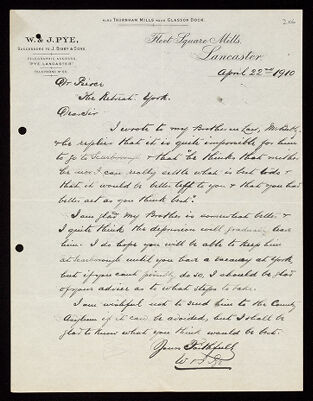 ALSO THURNHAM MILLS NEAR GLASSON DOCK.
206
W. & J. PYE,
SUCCESSORS TO J. BIBBY & SONS.
TELEGRAPHIC ADDRESS
"PYE, LANCASTER"
TELEPHONE Nº
Fleet Square Mills,
Lancaster,
April 22nd 1910
Dr Pierce
The Retreat York.
Dear Sir
I wrote to my Brother in Law,
& he replies that it is quite impossible for him
to go to Scarborough & that he thinks that neither
he nor I can really settle what is best to do &
that it would be better left to you & that you had
better act as you think best.
I am glad my Brother is somewhat better &
I quite think the depression will gradually leave
him. I do hope you will be able to keep him
at Scarborough until you have a vacancy at York
but if you can't possibly do so, I should be glad
of your advice as to what steps to take.
I am wishful not to send him to the County
Asylum if it can be avoided, but I shall be
glad to know what you think would be best.
Yours Faithfully
W Pye